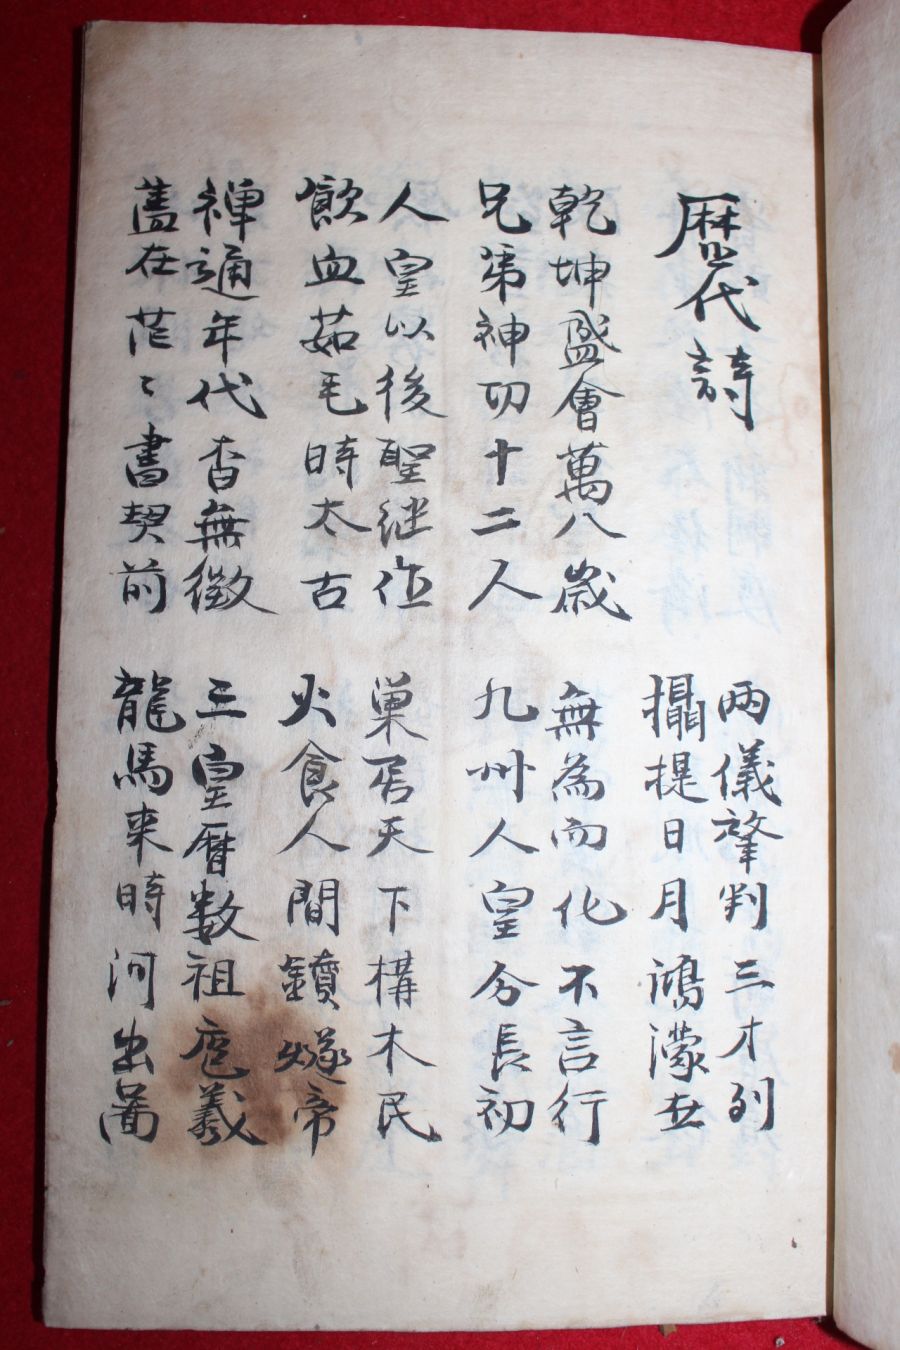 歷代詩
兩儀肇判三才列
攝提日月鴻濛世
乾坤盛會萬八歲 無為而化不言行
兄第神功十二人 九州人皇分長初
人皇以後聖継作 巢居天下構木民
飮血茹毛時太古 火食人間鑽燧帝
禪通年代杳無徵 三皇曆数祖庖羲
盖在茫〻書契前 龍馬来時河出圖